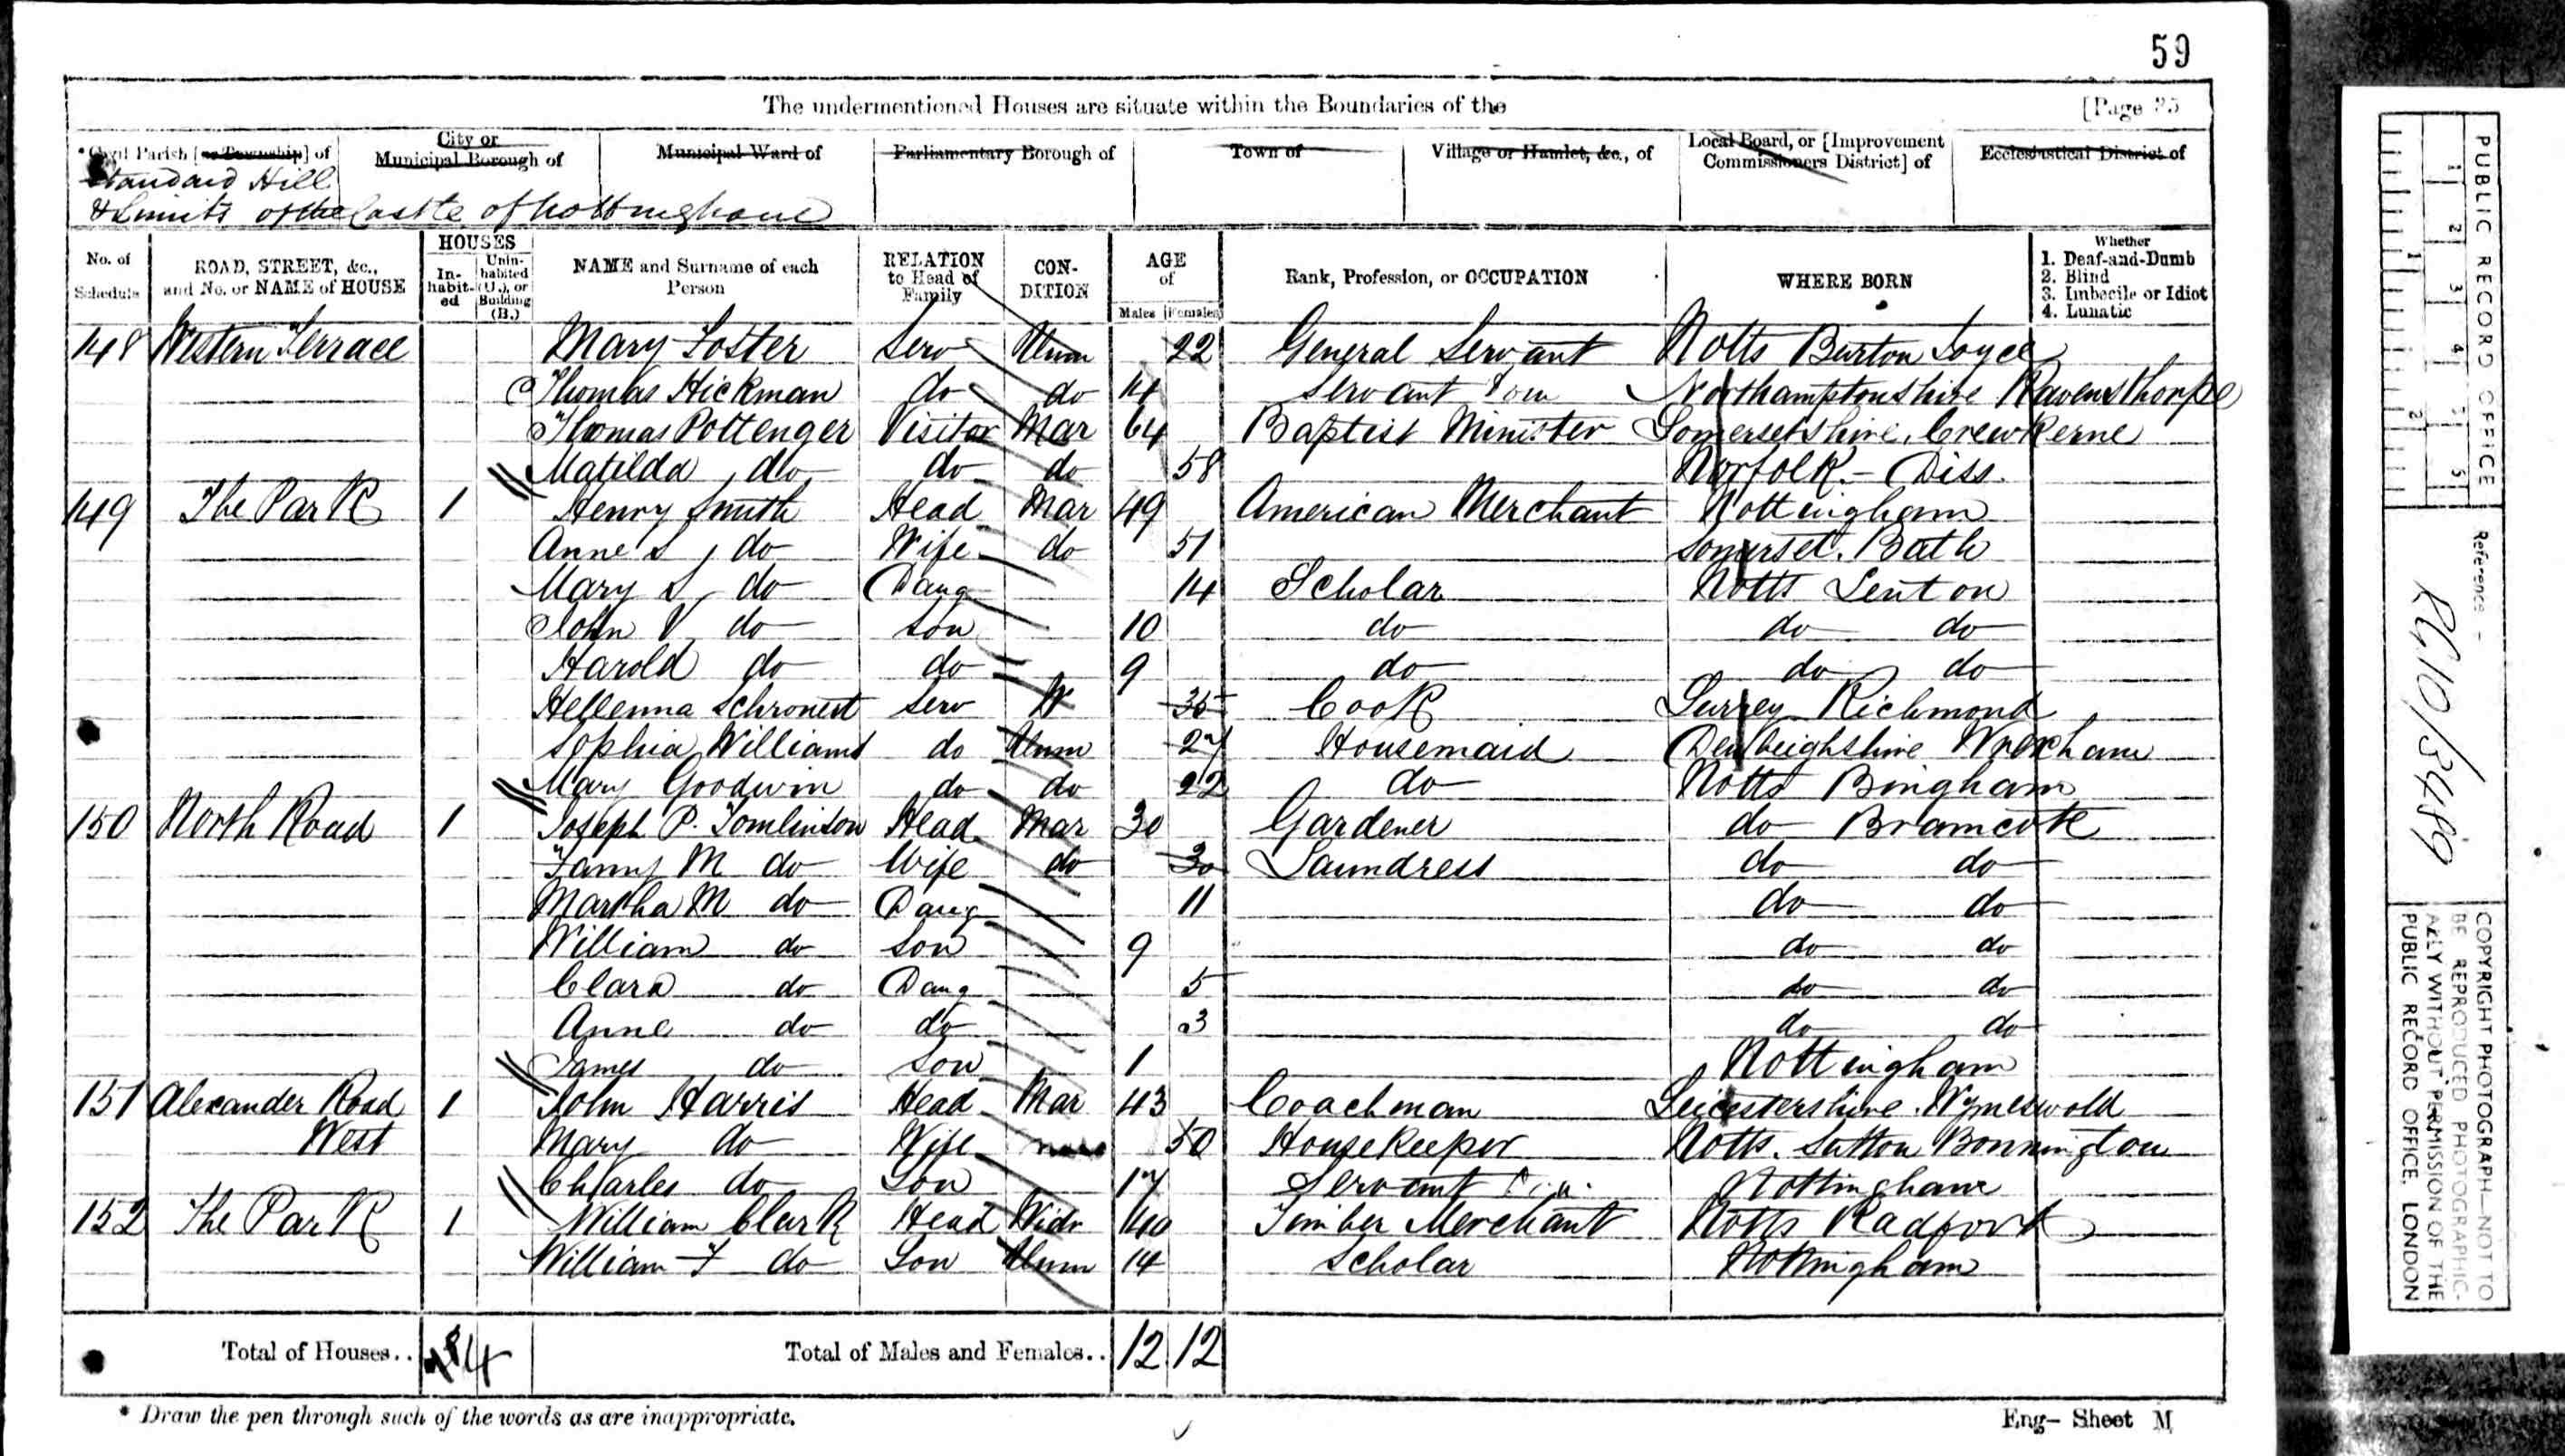 59
The undermentioned Houses are situate within the Boundaries of the [Page 25
*Civil Parish [or Township] of City or Municipal Borough of Municipal Ward of Parliamentary Borough of Town of Village or Hamlet, &c., of Local Board, or [Improvement Commissioners District] of Ecclesiastical District of
Standard Hill
& Limits of the Castle of Nottingham
No. of Schedule ROAD, STREET, &c., and No. or NAME of HOUSE HOUSES Inhabited Uninhabited (U.), or Building (B.) NAME and Surname of each Person RELATION to Head of Family CONDITION AGE of Males Females Rank, Profession, or OCCUPATION WHERE BORN Whether 1. Deaf-and-Dumb 2. Blind 3. Imbecile or Idiot 4. Lunatic
148 Western Terrace Mary Foster Serv Unm 22 General Servant Notts Burton Joyce
Thomas Hickman do do 14 Servant Dom Northamptonshire Ravensthorpe
Thomas Pottenger Visitor Mar 64 Baptist Minister Somersetshire. Crewkerne
Matilda do do do 58 Norfolk - Diss.
149 The Park 1 Henry Smith Head Mar 49 American Merchant Nottingham
Anne S do Wife do 51 Somerset. Bath
Mary S do Daug 14 Scholar Notts Lenton
John V do Son 10 do do do
Harold do do 9 do do do
Hellenna Serv W 35 Cook Surrey Richmond
Sophia Williams do Unm 27 Housemaid Denbeighshire Wrexham
Mary Goodwin do do 22 do Notts Bingham
150 North Road 1 Joseph P. Tomlinson Head Mar 30 Gardener do Bramcote
Fanny M do Wife do 30 Laundress do do
Martha M do Daug 11 do do
William do Son 9 do do
Clara do Daug 5 do do
Anne do do 3 do do
James do Son 1 Nottingham
151 Alexander Road 1 John Harris Head Mar 43 Coachman Leicestershire. Wymeswold
West Mary do Wife 50 Housekeeper Notts. Sutton Bonnington
Charles do Son 17 Servant Nottingham
152 The Park 1 William Clark Head Widr 40 Timber Merchant Notts Radford
William F do Son Unm 14 Scholar Nottingham
Total of Houses.. 4 Total of Males and Females.. 12 12
* Draw the pen through such of the words as are inappropriate.
Eng- Sheet M
PUBLIC RECORD OFFICE
1 2 3 4 5
1 2
Reference -
RG 10/3489
COPYRIGHT PHOTOGRAPH—NOT TO
BE REPRODUCED PHOTOGRAPHIC-
ALLY WITHOUT PERMISSION OF THE
PUBLIC RECORD OFFICE, LONDON